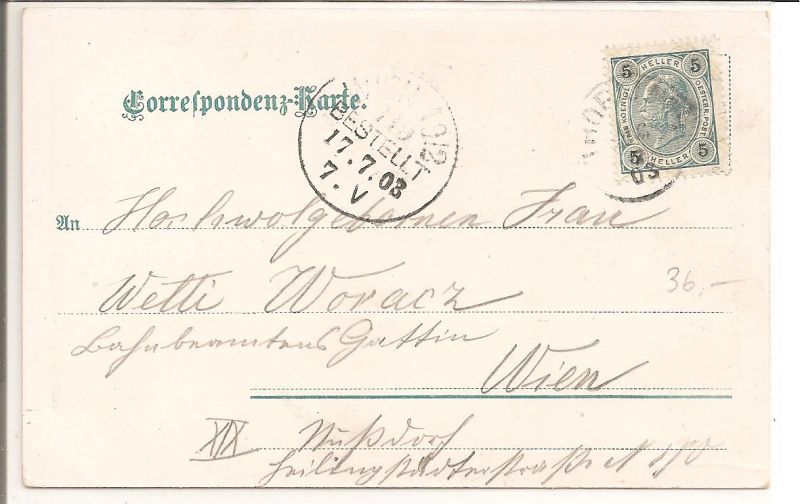 Correspondenz-Karte.
BESTELLT
17.7.03
7.V
5 HELLER 5
KAIS. KOENIGL. OESTERR. POST
5 HELLER 5
03
An Hochwolgebornen Frau
Wetti Woracz
Bahnbeamtens Gattin
Wien
XIX Nußdorf
Heiligenstädterstraße N
36.–